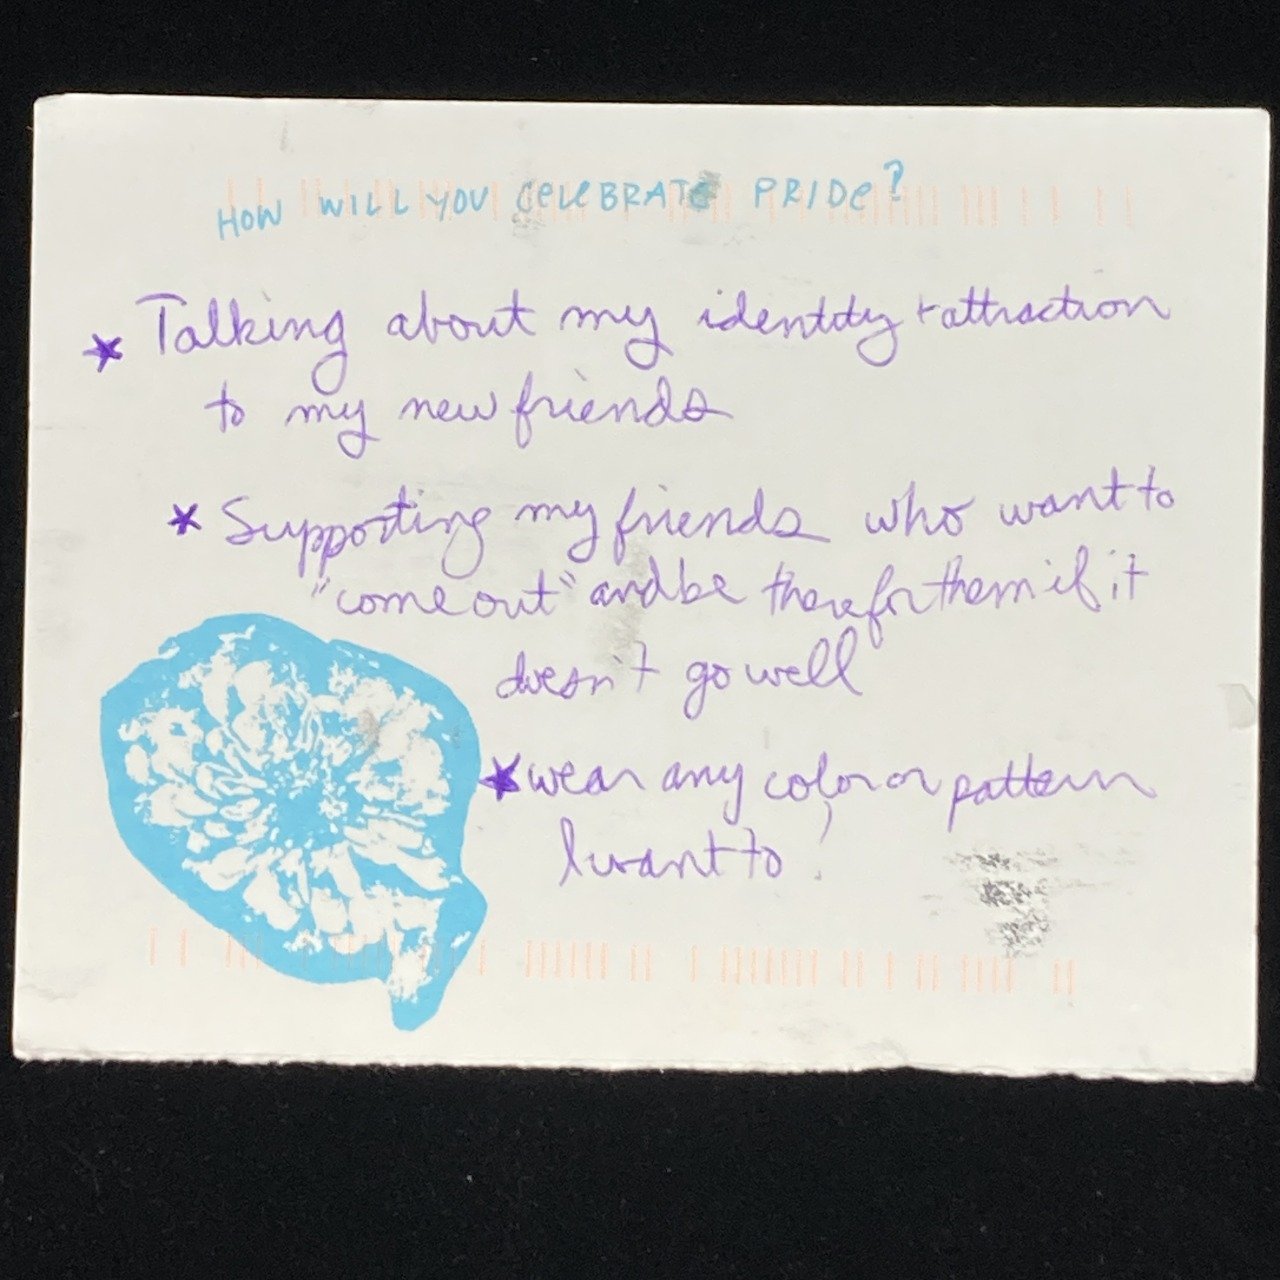 HOW WILL YOU CELEBRATE PRIDE?
* Talking about my identity + attraction
to my new friends
* Supporting my friends who want to
"come out" and be there for them if it
doesn't go well
* wear any color or pattern
I want to!